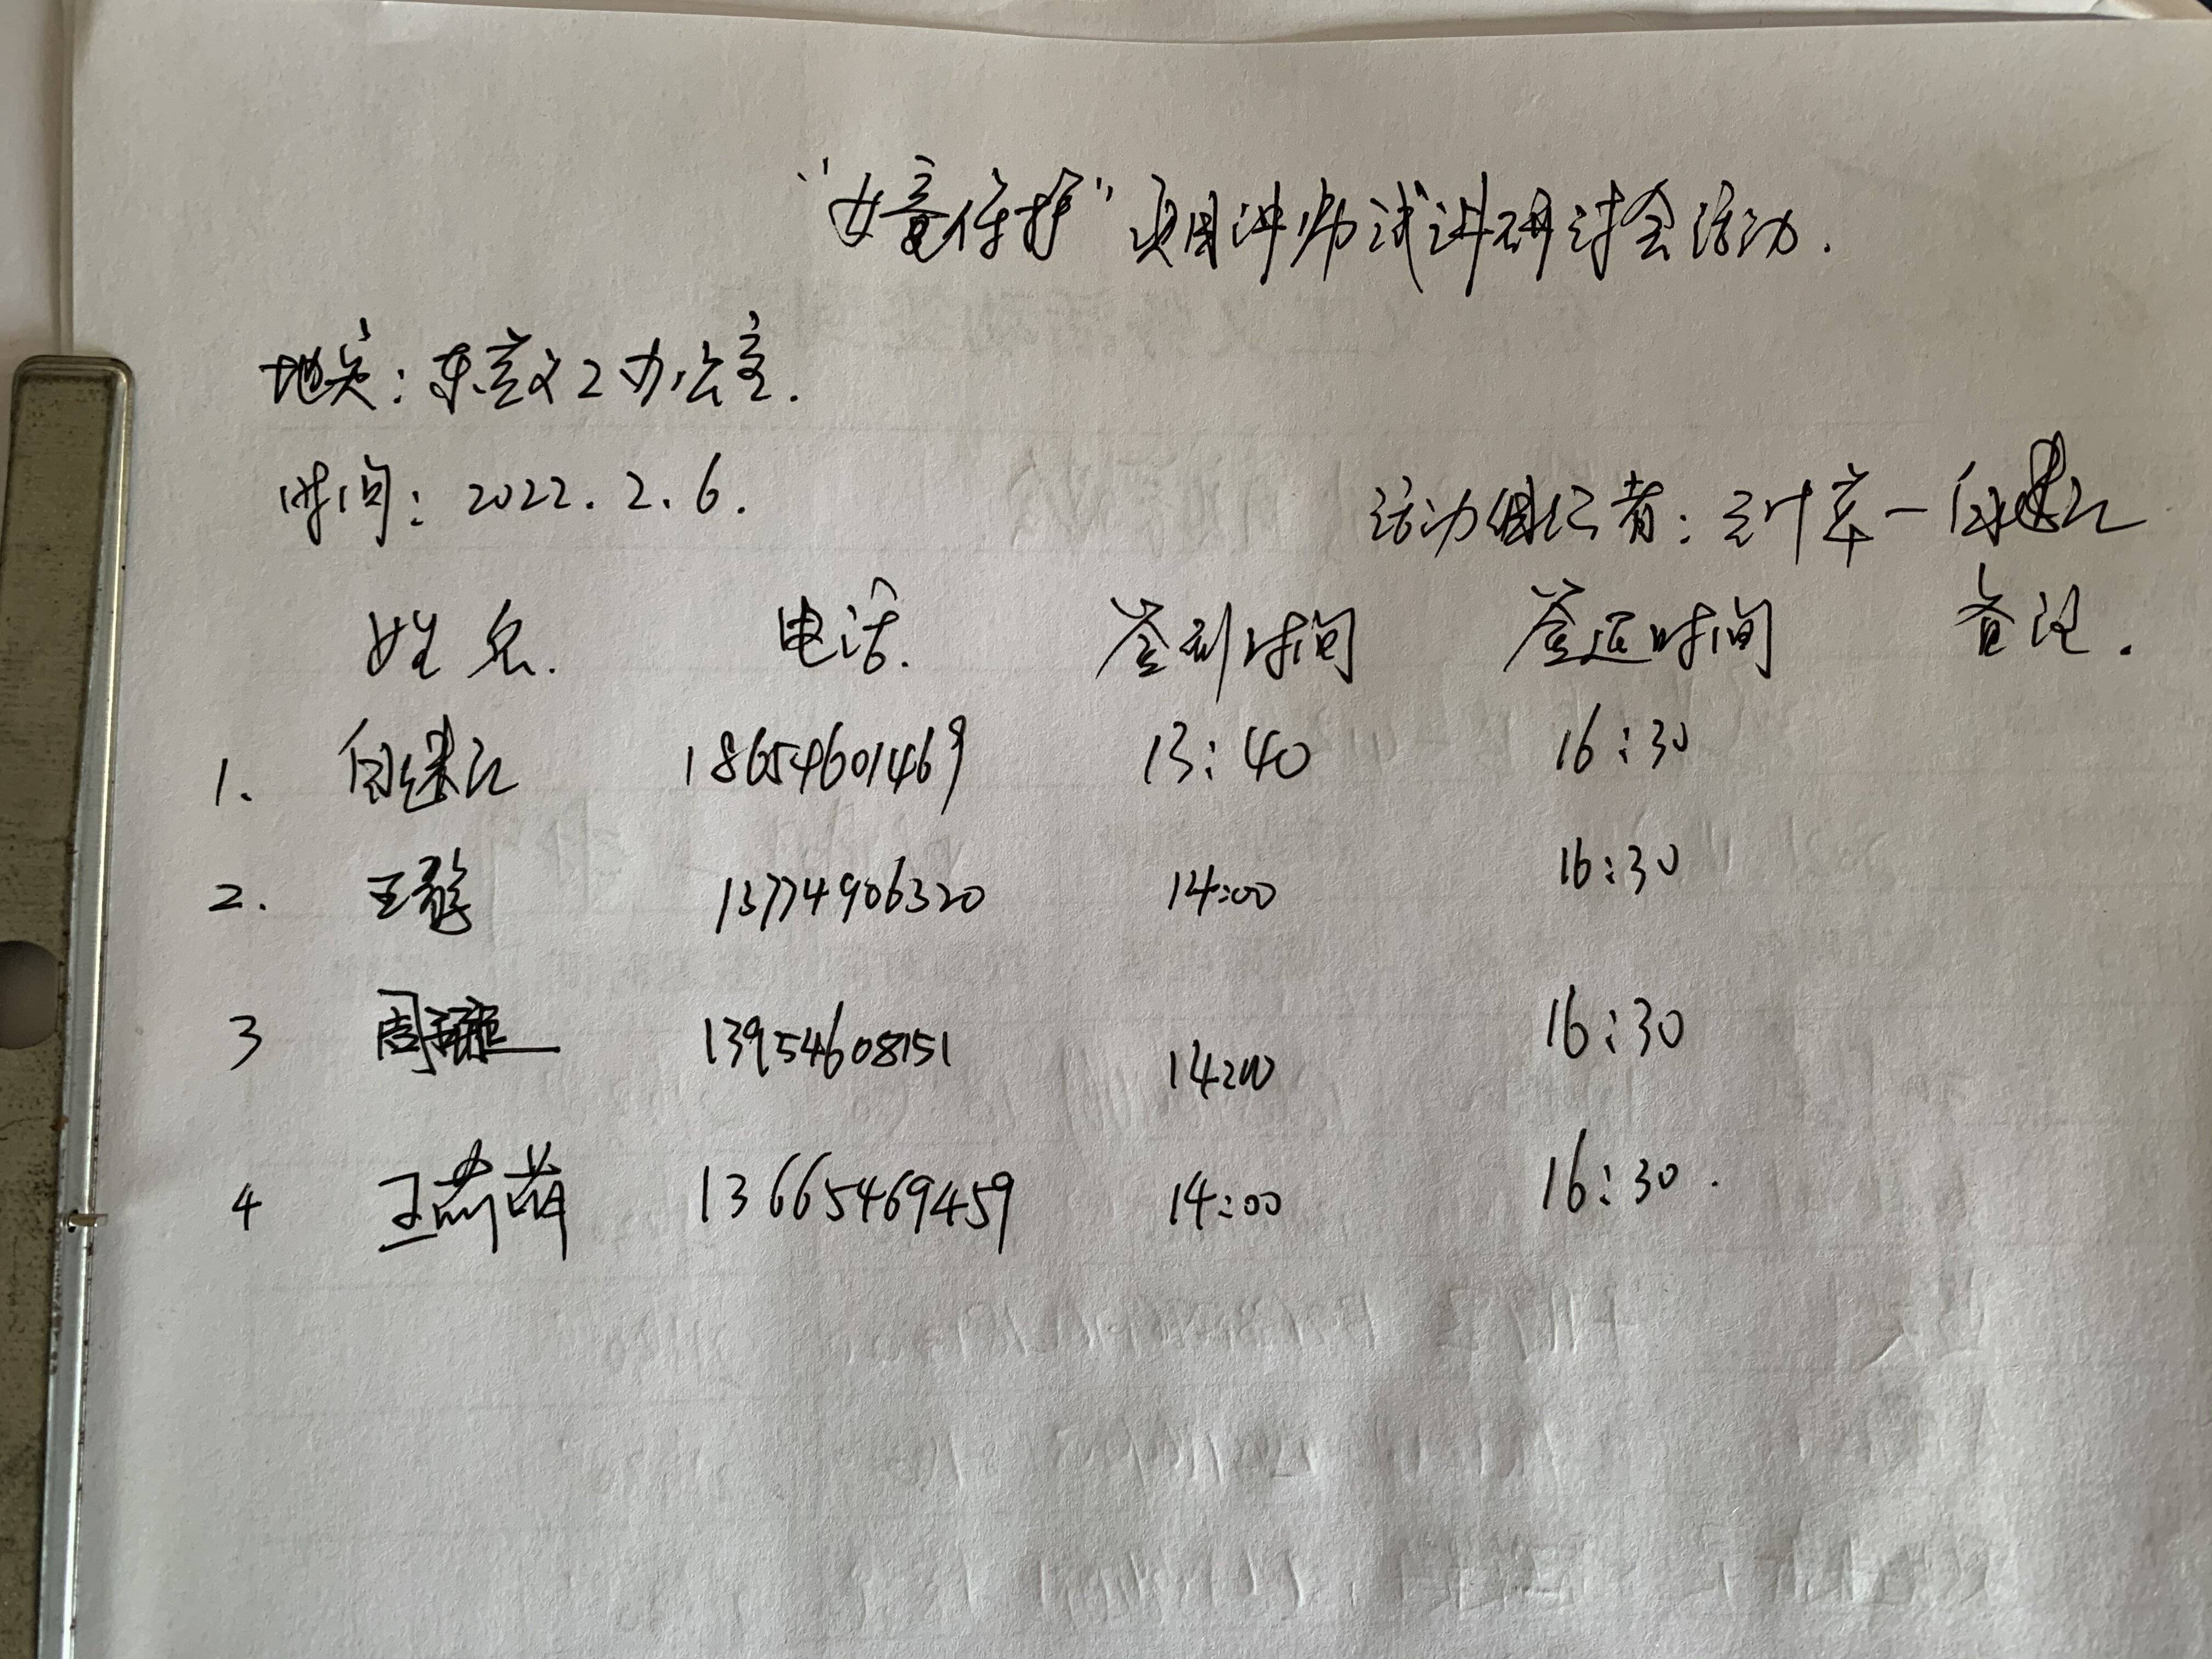 “女童保护”项目讲师试讲研讨会活动.
地点:东营义工办公室.
时间: 2022.2.6. 活动组织者:
姓名. 电话. 签到时间 签退时间 备注.
1. 白继江 18654601469 13:40 16:30
2. 王 13774906320 14:00 16:30
3 周 13954608151 14:00 16:30
4 王萌萌 13665469459 14:00 16:30.